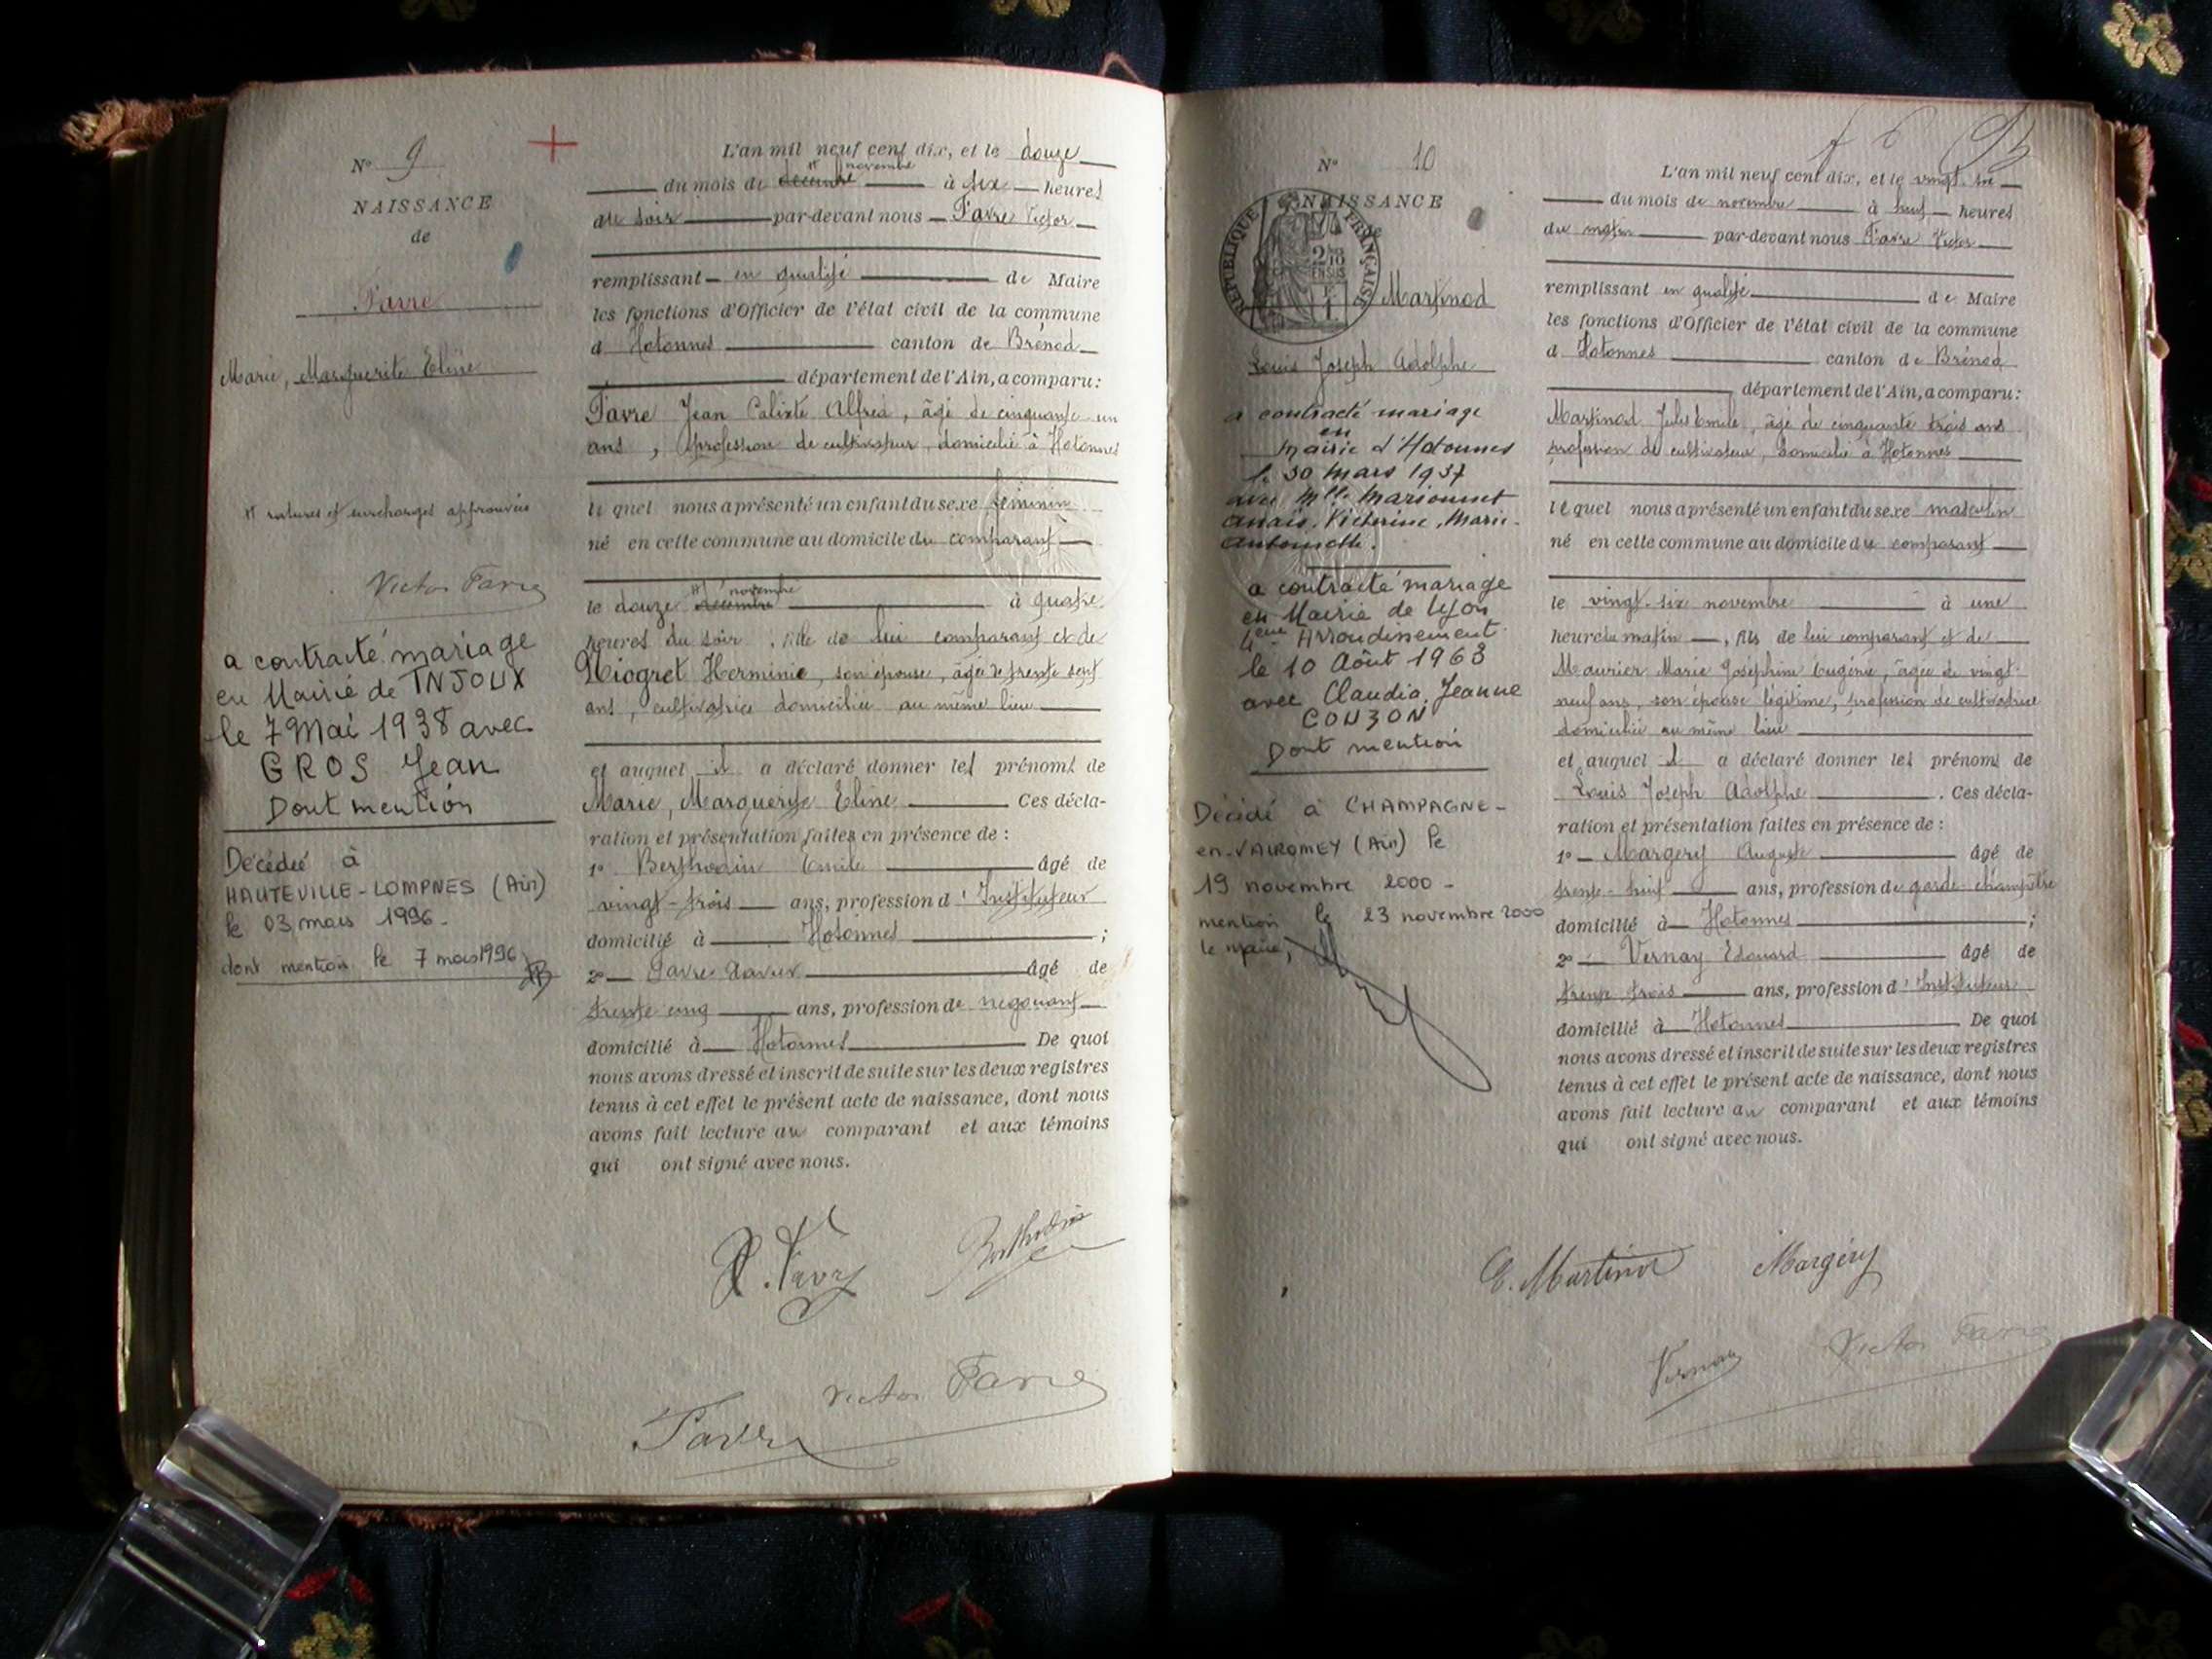 N° 9
NAISSANCE
de
Favre
Marie, Marguerite Eline
ratures et surcharges approuvées
Victor Favre
a contracté mariage
en Mairie de INJOUX
le 7 Mai 1938 avec
GROS Jean
Dont mention
Décédée à
HAUTEVILLE-LOMPNES (Ain)
le 03 mars 1996.
dont mention le 7 mars 1996
L'an mil neuf cent dix, et le douze
novembre
du mois de decembre à six heures
du soir par-devant nous Favre Victor
remplissant en qualité de Maire
les fonctions d'Officier de l'état civil de la commune
d Hotonnes canton de Brénod
département de l'Ain, a comparu:
Favre Jean Calixte Alfred, âgé de cinquante un
ans, profession de cultivateur, domicilié à Hotonnes
lequel nous a présenté un enfant du sexe féminin
né en cette commune au domicile du comparant
novembre
le douze decembre à quatre
heures du soir, fille de lui comparant et de
Niogret Herminie, son épouse, âgée de trente sept
ans, cultivatrice domiciliée au même lieu
et auquel il a déclaré donner les prénoms de
Marie, Marguerite Eline Ces décla-
ration et présentation faites en présence de:
1° Berthodin Emile âgé de
vingt-trois ans, profession d'Instituteur
domicilié à Hotonnes;
2° Favre âgé de
trente cinq ans, profession de négociant
domicilié à Hotonnes De quoi
nous avons dressé et inscrit de suite sur les deux registres
tenus à cet effet le présent acte de naissance, dont nous
avons fait lecture au comparant et aux témoins
qui ont signé avec nous.
Favre Berthodin
Victor Favre
Favre
N° 10
NAISSANCE
de
REPUBLIQUE FRANÇAISE
Martinod
Louis Joseph Adolphe
a contracté mariage
en
mairie d'Hotonnes
le 30 mars 1937
avec Mlle Marionnet
Anaïs, Victorine, Marie-
Antoinette.
a contracté mariage
en Mairie de Lyon
4ème Arrondissement
le 10 Août 1963
avec Claudia, Jeanne
COUZON
Dont mention
Décédé à CHAMPAGNE-
en-VALROMEY (Ain) le
19 novembre 2000-
mention le 23 novembre 2000
le maire,
L'an mil neuf cent dix, et le vingt six
du mois de novembre à neuf heures
du matin par-devant nous Favre Victor
remplissant en qualité de Maire
les fonctions d'Officier de l'état civil de la commune
d Hotonnes canton de Brénod
département de l'Ain, a comparu:
Martinod Jules Emile, âgé de cinquante trois ans
profession de cultivateur, domicilié à Hotonnes
lequel nous a présenté un enfant du sexe masculin
né en cette commune au domicile du comparant
le vingt-six novembre à une
heure du matin, fils de lui comparant et de
Maurier Marie Joséphine Eugénie, âgée de vingt-
neuf ans, son épouse légitime, profession de cultivatrice
domiciliée au même lieu
et auquel il a déclaré donner les prénoms de
Louis Joseph Adolphe. Ces décla-
ration et présentation faites en présence de:
1° Margery Auguste âgé de
trente-huit ans, profession de garde-champêtre
domicilié à Hotonnes;
2° Vernay Edouard âgé de
trente trois ans, profession d'Instituteur
domicilié à Hotonnes De quoi
nous avons dressé et inscrit de suite sur les deux registres
tenus à cet effet le présent acte de naissance, dont nous
avons fait lecture au comparant et aux témoins
qui ont signé avec nous.
E. Martinod Margéry
Vernay Victor Favre